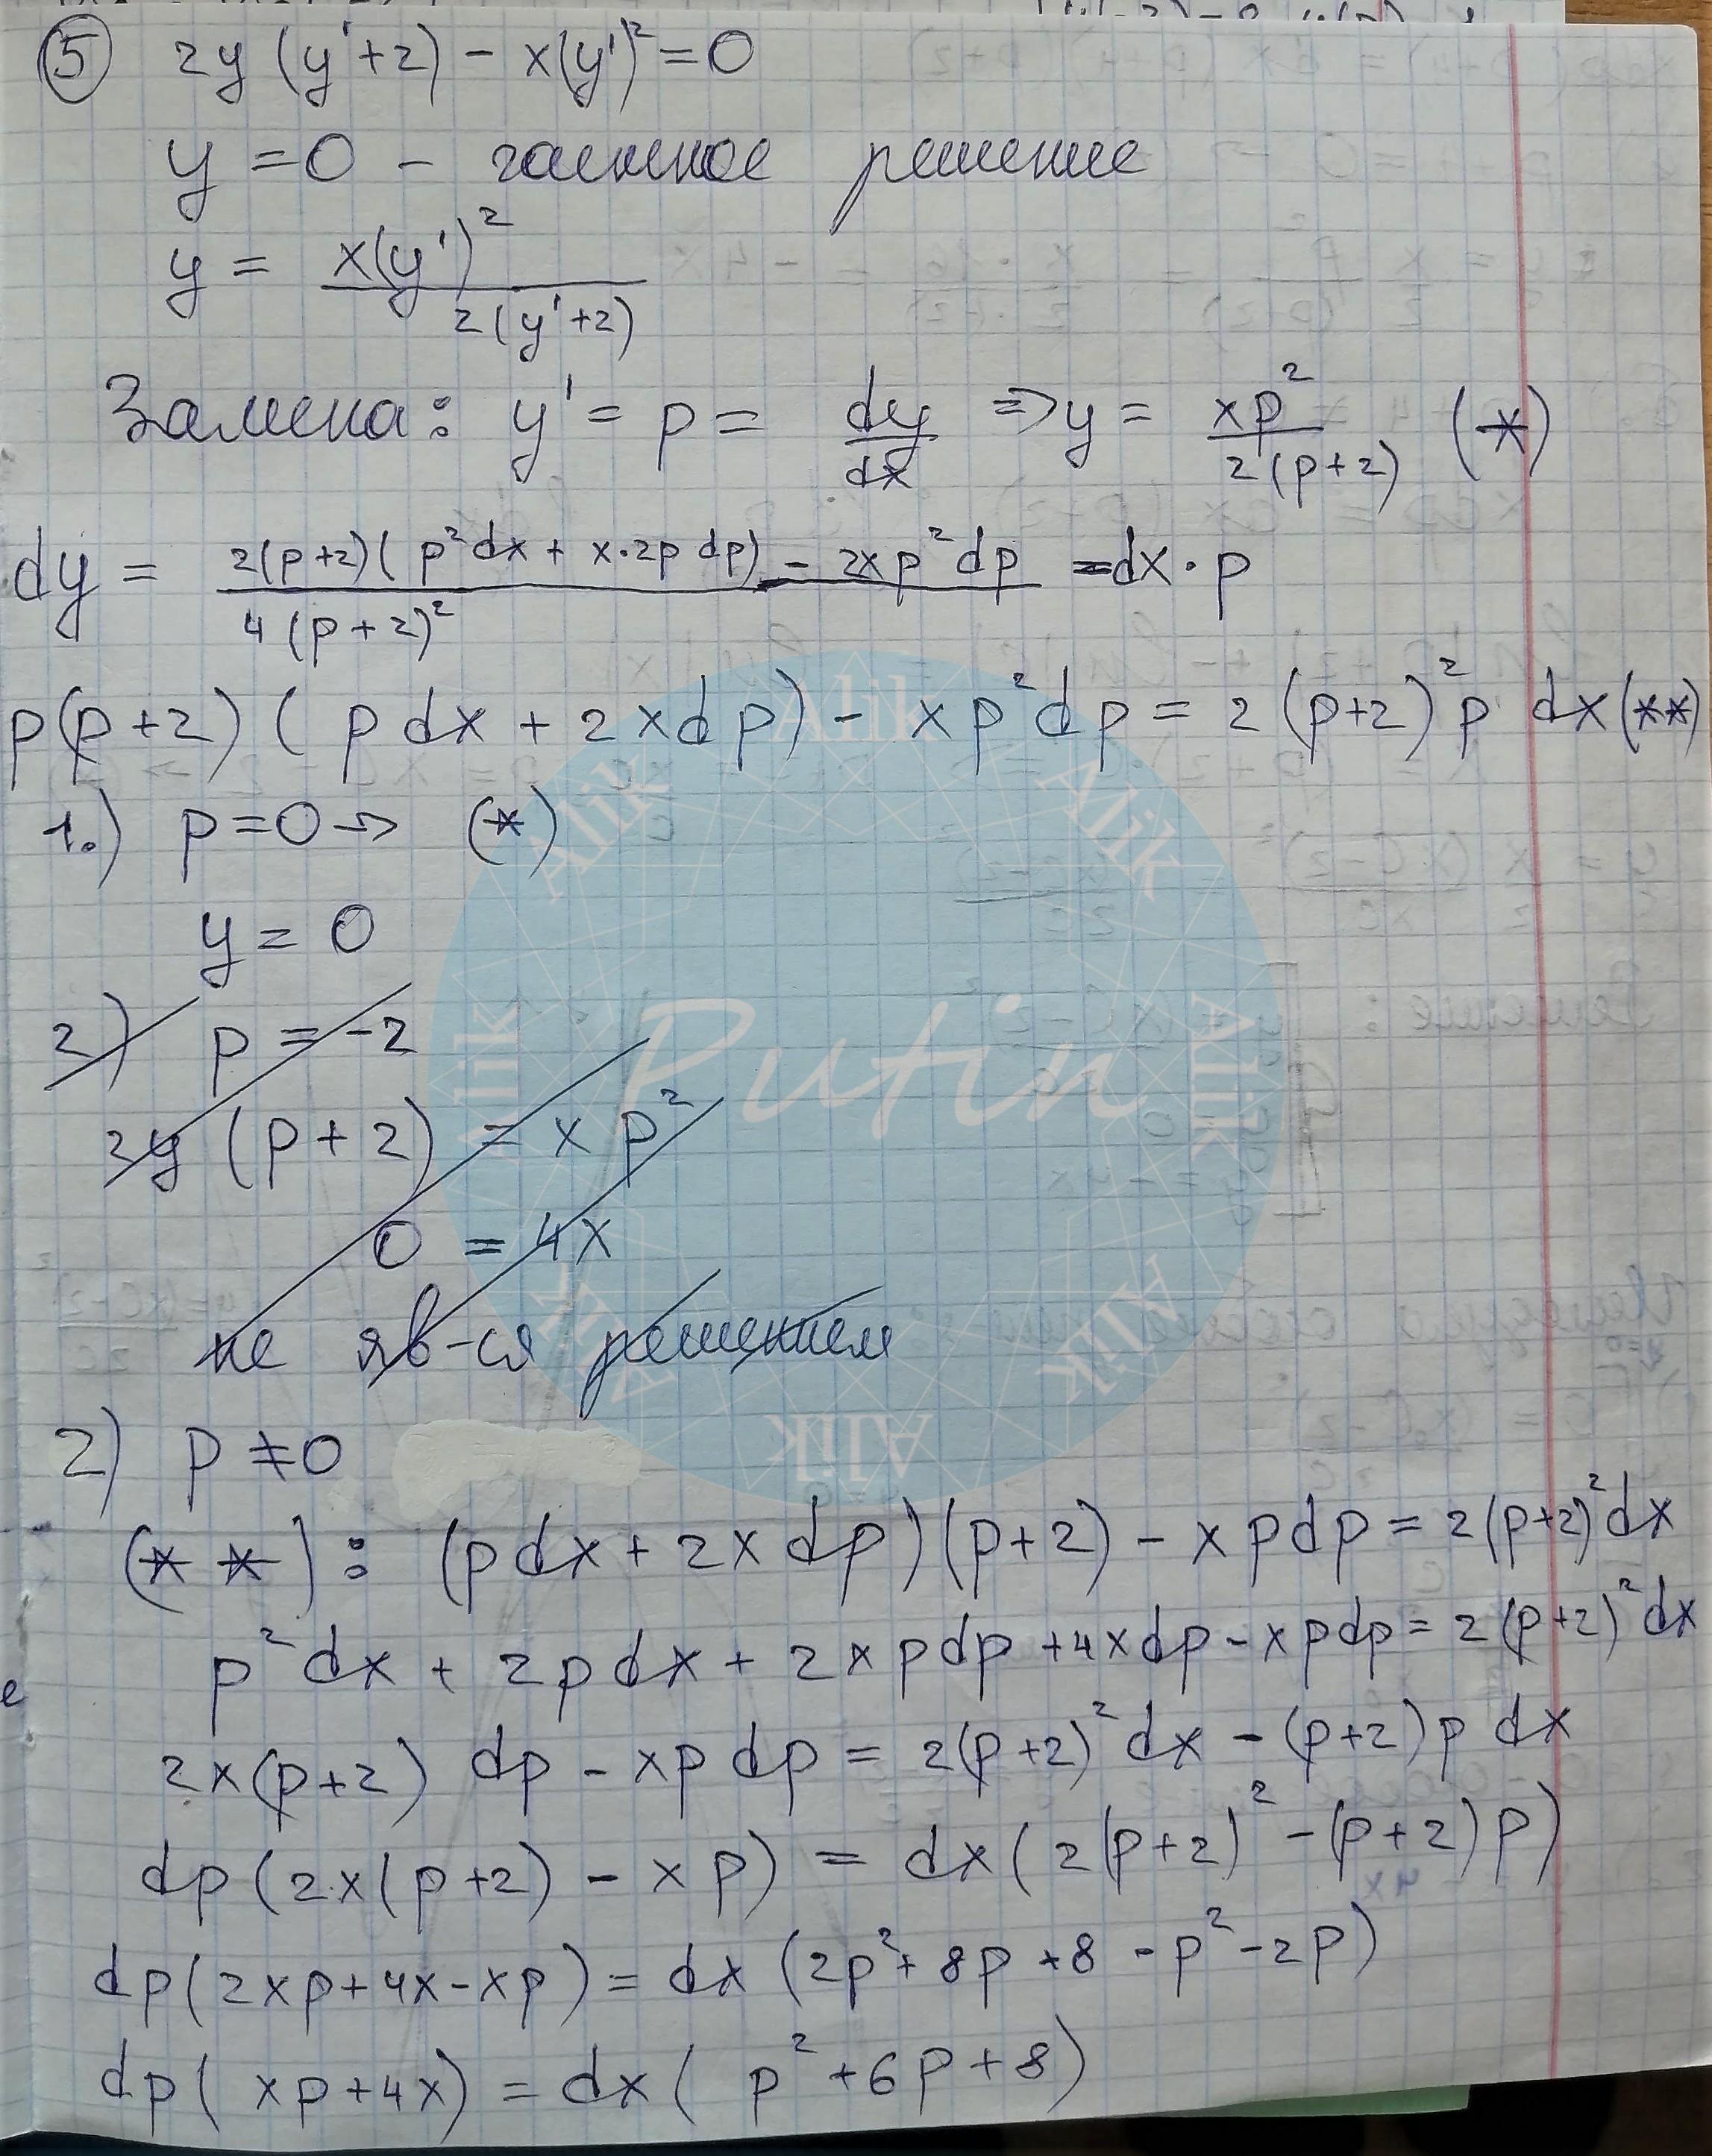 ⑤ 2y (y'+2) - x(y')²=0
y =0 - частное решение
y = x(y')² / 2(y'+2)
Замена: y' = p = dy/dx => y = xp² / 2(p+2) (*)
dy = 2(p+2)( p²dx + x·2p dp) - 2xp²dp / 4(p+2)² = dx·p
p(p+2) ( p dx + 2xdp) - xp²dp = 2(p+2)²p dx (**)
1.) p=0 -> (*)
y = 0
2) p = -2
2y (p+2) = xp²
0 = 4x
не яв-ся решением
2) p ≠ 0
(**): (pdx + 2xdp)(p+2) - xpdp = 2(p+2)²dx
p²dx + 2pdx + 2xpdp + 4xdp - xpdp = 2(p+2)²dx
2x(p+2) dp - xpdp = 2(p+2)²dx - (p+2)p dx
dp(2x(p+2) - xp) = dx(2(p+2)² - (p+2)p)
dp(2xp+4x-xp) = dx (2p²+8p+8-p²-2p)
dp( xp+4x) = dx( p²+6p+8)
Alik
Alik
Alik
Alik
Alik
Alik
Alik
Alik
Putin